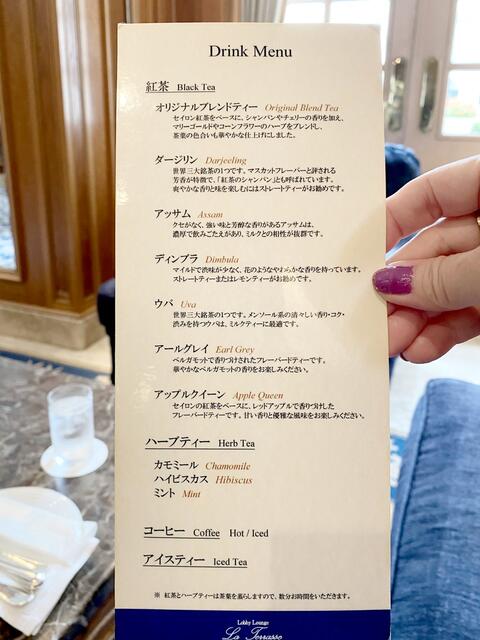 Drink Menu
紅茶 Black Tea
オリジナルブレンドティー Original Blend Tea
セイロン紅茶をベースに、シャンパンやチェリーの香りを加え、
マリーゴールドやコーンフラワーのハーブをブレンドし、
茶葉の色合いも華やかな仕上げにしました。
ダージリン Darjeeling
世界三大銘茶の1つです。マスカットフレーバーと評される
芳香が特徴で、「紅茶のシャンパン」とも呼ばれています。
爽やかな香りと味を楽しむにはストレートティーがお勧めです。
アッサム Assam
クセがなく、強い味と芳醇な香りがあるアッサムは、
濃厚で飲みごたえがあり、ミルクとの相性が抜群です。
ディンブラ Dimbula
マイルドで渋味が少なく、花のようなやすらかな香りを持っています。
ストレートティーまたはレモンティーがお勧めです。
ウバ Uva
世界三大銘茶の1つです。メンソール系の清々しい香り・コク・
渋みを持つウバは、ミルクティーに最適です。
アールグレイ Earl Grey
ベルガモットで香りづけされたフレーバードティーです。
華やかなベルガモットの香りをお楽しみください。
アップルクイーン Apple Queen
セイロンの紅茶をベースに、レッドアップルで香りづけした
フレーバードティーです。甘い香りと優雅な風味をお楽しみください。
ハーブティー Herb Tea
カモミール Chamomile
ハイビスカス Hibiscus
ミント Mint
コーヒー Coffee Hot / Iced
アイスティー Iced Tea
※ 紅茶とハーブティーは茶葉を蒸らしますので、数分お時間をいただきます。
Lobby Lounge
La Terrasse